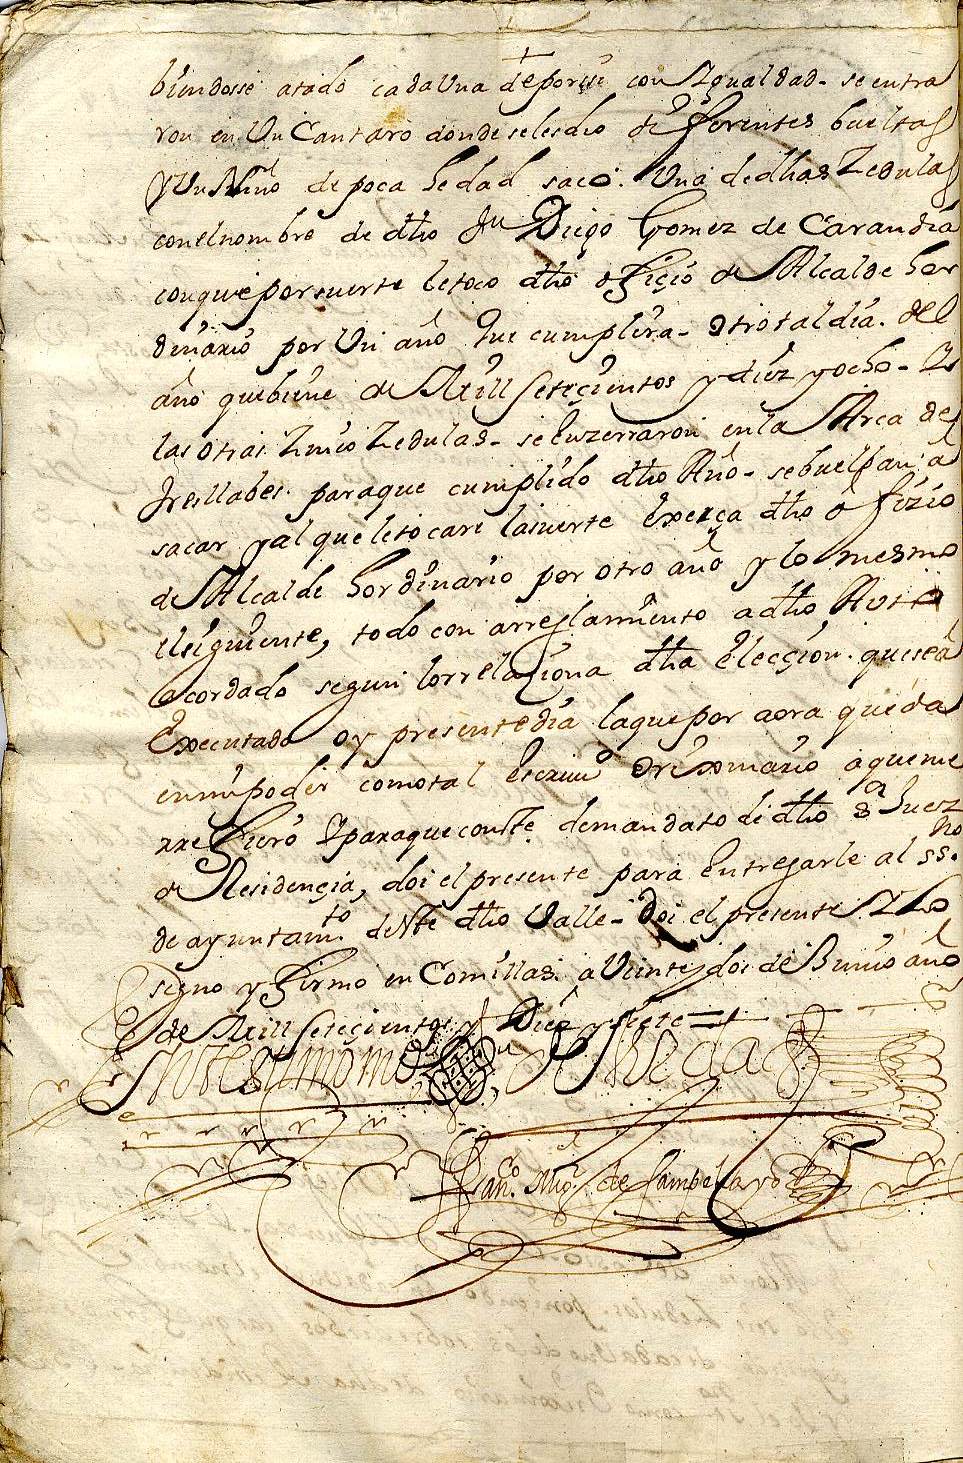 biendosse atado cada Una de por si con Igualdad - se entra
ron en Un Cantaro donde se les dio diferentes bueltas
y Un Niño de poca hedad saco. Una de dhas Zedulas
con el nombre de dho Dn Diego Gomez de Carandia
con que por suerte le toco dho ofiçio de Alcalde hor
dinario por Un año que cumplira - otro tal dia. del
año que biene de Mill Seteçientos y diez y ocho - Y
las otras Zinco Zedulas - se Enzerraron en la Arca de
tres llabes. para que cumplido dho Año - se buelban a
sacar y al que le tocare la suerte Exerça dho ofizio
de Alcalde hordinario por otro año y lo mesmo
el siguiente, todo con arreglamiento a dho Auto
acordado segun lo rrelaziona dha elecçion. que se a
Executado oy presente dia la que por aora queda
en mi poder como tal Escriuno Orixinario a que me
rrefiero Y para que conste de mandato de dho Sr Juez
de Residençia, doi el presente para Entregarle al ssno.
de ayuntamto de Este dho Valle - Doi el presente Y lo
signo y firmo en Comillas a Veinte y dos de Junio año
de Mill Seteçientos y Diez y siete =
En testimonio de Verdad
Franco. Migl de Sanpelayo